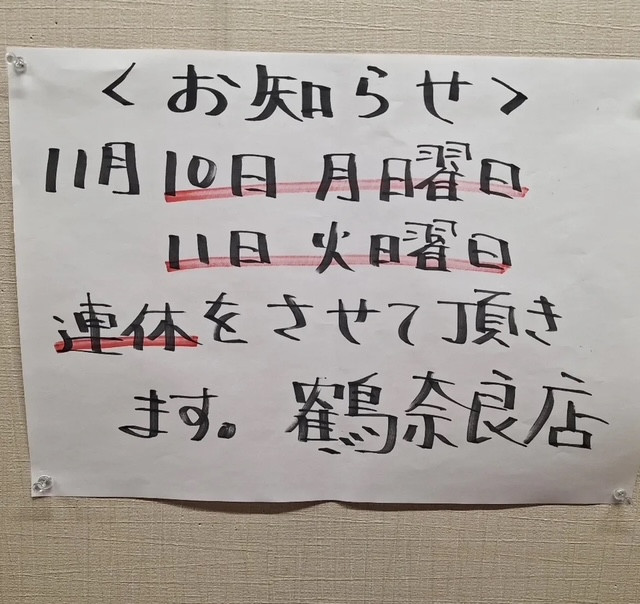 <お知らせ>
11月10日 月曜日
11日 火曜日
連休をさせて頂き
ます。 鶴奈良店